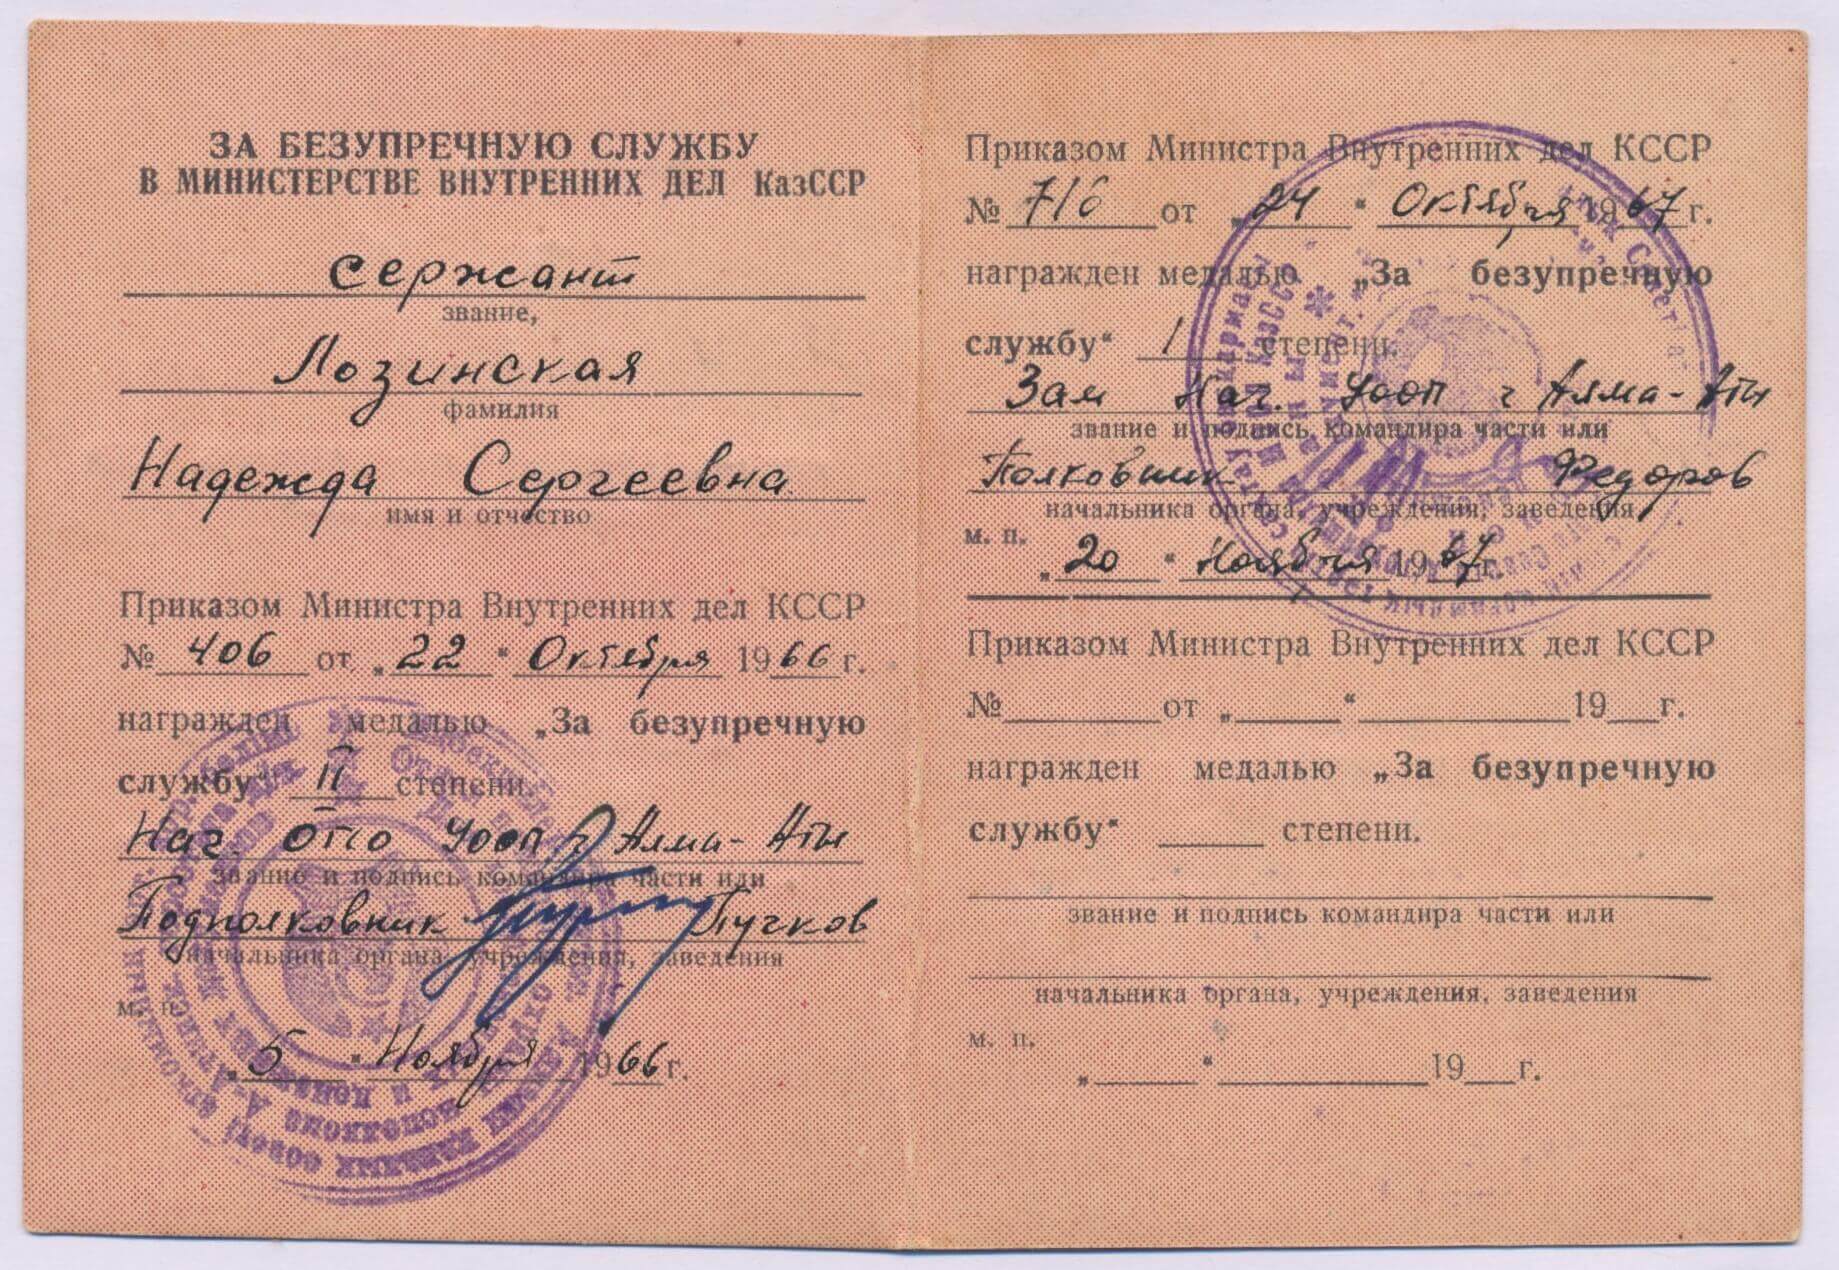 ЗА БЕЗУПРЕЧНУЮ СЛУЖБУ
В МИНИСТЕРСТВЕ ВНУТРЕННИХ ДЕЛ КазССР
сержант
звание,
Лозинская
фамилия
Надежда Сергеевна
имя и отчество
Приказом Министра Внутренних дел КССР
№ 406 от „22“ Октября 1966 г.
награжден медалью „За безупречную
службу“ II степени.
Нач. ОПО УООП г Алма-Аты
звание и подпись командира части или
Подполковник Пучков
начальника органа, учреждения, заведения
м. п.
„5“ Ноября 1966 г.
Приказом Министра Внутренних дел КССР
№ 716 от „24“ Октября 1967 г.
награжден медалью „За безупречную
службу“ I степени.
Зам Нач. УООП г Алма-Аты
звание и подпись командира части или
Полковник Федоров
начальника органа, учреждения, заведения
м. п.
„20“ Ноября 1967 г.
Приказом Министра Внутренних дел КССР
№ от „ “ 19 г.
награжден медалью „За безупречную
службу“ степени.
звание и подпись командира части или
начальника органа, учреждения, заведения
м. п.
„ “ 19 г.